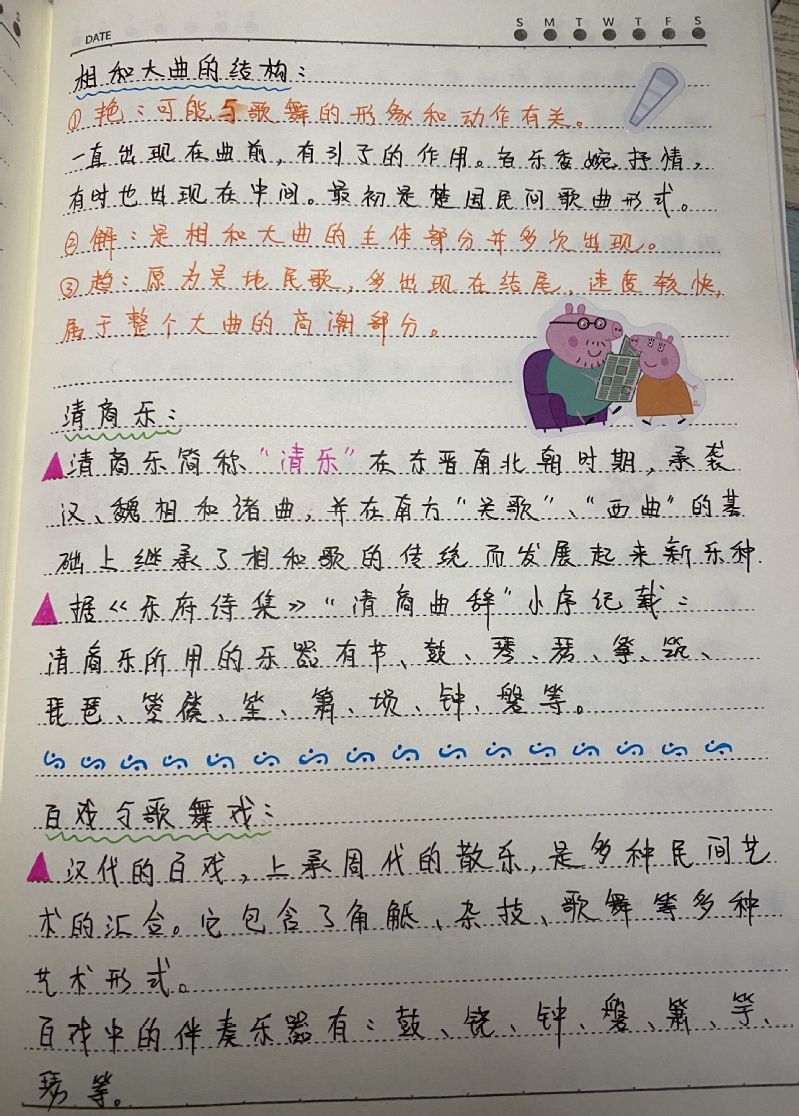 S M T W T F S
DATE
相和大曲的结构：
①艳：可能与歌舞的形象和动作有关。
一直出现在曲前，有引子的作用。音乐委婉抒情，
有时也出现在中间。最初是楚国民间歌曲形式。
②解：是相和大曲的主体部分并多次出现。
③趋：原为吴地民歌，多出现在结尾，速度较快，
属于整个大曲的高潮部分。
清商乐：
清商乐简称“清乐”在东晋南北朝时期，承袭
汉、魏相和诸曲，并在南方“吴歌”、“西曲”的基
础上继承了相和歌的传统而发展起来新乐种.
据《乐府诗集》“清商曲辞”小序纪载：
清商乐所用的乐器有节、鼓、琴、瑟、筝、筑、
琵琶、箜篌、笙、箫、埙、钟、磐等。
百戏与歌舞戏：
汉代的百戏，上承周代的散乐，是多种民间艺
术的汇合。它包含了角觝、杂技、歌舞等多种
艺术形式。
百戏中的伴奏乐器有：鼓、铙、钟、磐、箫、竽、
瑟等。